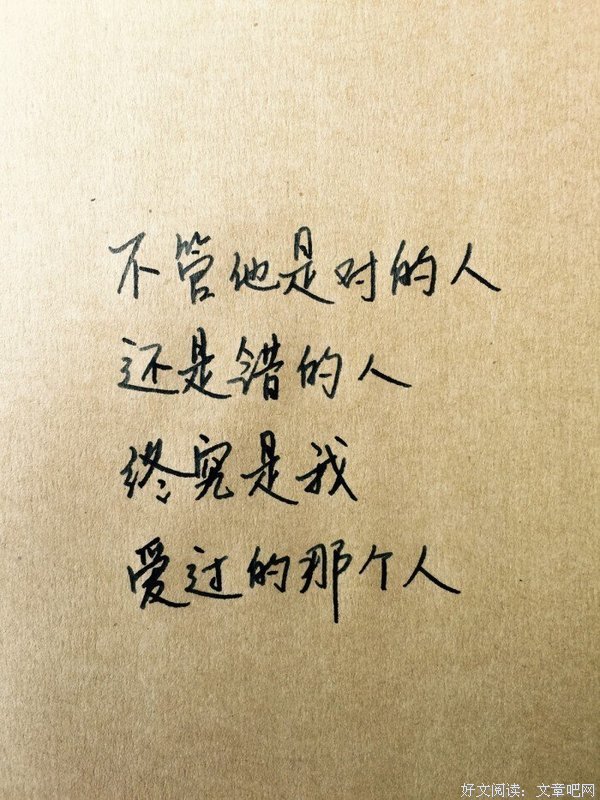 不管他是对的人
还是错的人
终究是我
爱过的那个人
好文阅读：文章吧网